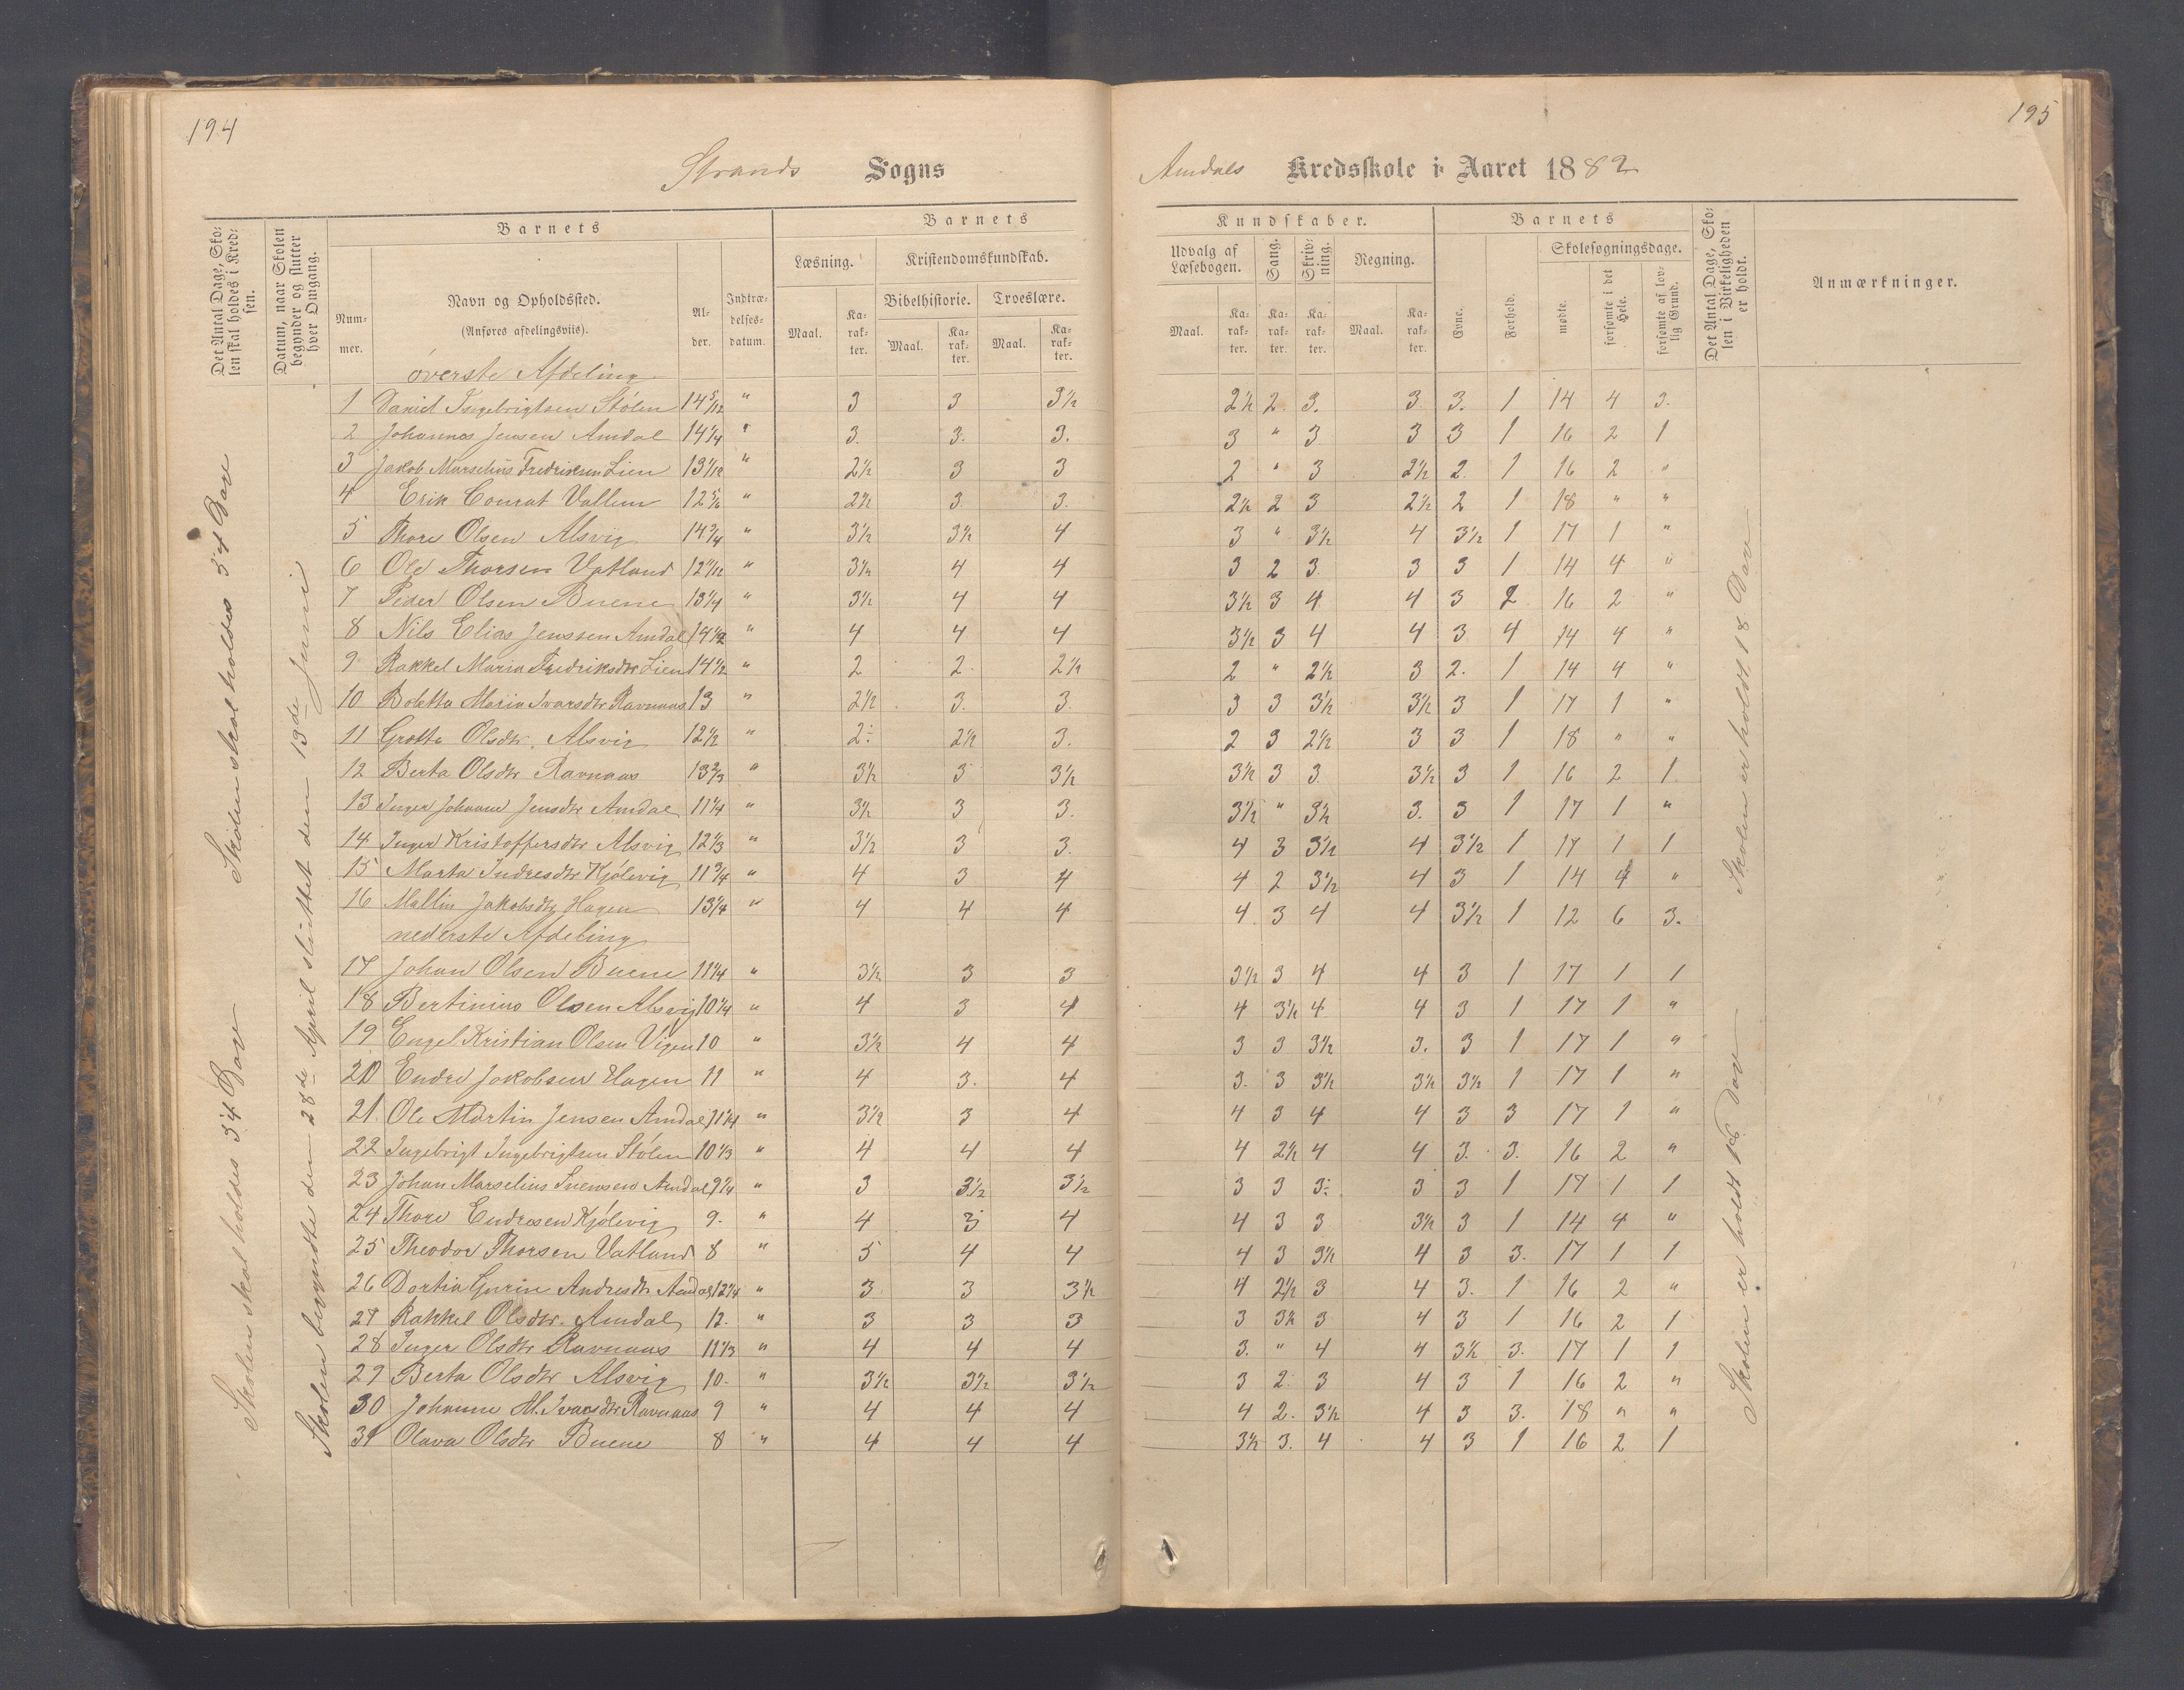 194
195
Strands Sogns
Amdals Kredsskole i Aaret 1882
Det Antal Dage, Sko-
len skal holdes i Kred-
sen.
Datum, naar Skolen
begynder og slutter
hver Omgang.
Barnets
Num-
mer.
Navn og Opholdssted.
(Anføres afdelingsviis).
Al-
der.
Indtræ-
delses-
datum.
Barnets
Læsning.
Kristendomskundskab.
Bibelhistorie.
Troeslære.
Maal.
Ka-
rak-
ter.
Maal.
Ka-
rak-
ter.
Maal.
Ka-
rak-
ter.
Kundskaber.
Udvalg af
Læsebogen.
Sang.
Skriv-
ning.
Regning.
Maal.
Ka-
rak-
ter.
Ka-
rak-
ter.
Ka-
rak-
ter.
Maal.
Ka-
rak-
ter.
Barnets
Evne.
Forhold.
Skolesøgningsdage.
mødte.
forsømte i det
Hele.
forsømte af lov-
lig Grund.
Det Antal Dage, Sko-
len i Virkeligheden
er holdt.
Anmærkninger.
øverste Afdeling
1 Daniel Ingebrigtsen Stølen 14 5/12 " 3 3 3½ 2½ 2 3. 3 3. 1 14 4 3.
2 Johannes Jensen Amdal 14¼ " 3. 3. 3. 3 " 3 3 3 1 16 2 1
3 Jakob Marselius Fredriksen Lien 13 1/12 " 2½ 3 3 2 " 3 2½ 2. 1 16 2 "
4 Erik Conrat Vallem 12 5/6 " 2½ 3 3. 2½ 2 3 2½ 2 1 18 " "
5 Thore Olsen Alsvig 14¾ " 3½ 3½ 4 3 " 3½ 4 3½ 1 17 1 "
6 Ole Thorsen Vatland 12 11/12 " 3½ 4 4 3 2 3 3 3 1 14 4 "
7 Peder Olsen Buene 13¼ " 3½ 4 4 3½ 3 4 4 3 2 16 2 "
8 Nils Elias Jenssen Amdal 14½ " 4 4 4 3½ 3 4 4 3 4 14 4 "
9 Rakkel Maria Fredriksdtr Lien 14½ " 2 2 2½ 2 " 2½ 3 2. 1 14 4 "
10 Boletta Maria Ivarsdtr Ravnaas 13 " 2½ 3. 3. 3 3 3½ 3½ 3 1 17 1 "
11 Grette Olsdtr. Alsvig 12½ " 2÷ 2½ 3. 2 3 2½ 3 3 1 18 " "
12 Berta Olsdtr Ravnaas 13⅔ " 3½ 3 3½ 3½ 3 3 3½ 3 1 16 2 1
13 Inger Johanne Jensdtr Amdal 11¼ " 3½ 3 3. 3½ " 3½ 3. 3 1 17 1 "
14 Inger Kristoffersdtr Alsvig 12⅓ " 3½ 3 3. 4 3 3½ 4 3½ 1 17 1 1
15 Marta Indresdtr Kjølevig 11¾ " 4 3 4 4 2 3½ 4 3 1 14 4 "
16 Mallin Jakobsdtr Hagen 13¼ " 4 4 4 4 3 4 4 3½ 1 12 6 3.
nederste Afdeling
17 Johan Olsen Buene 11¼ " 3½ 3 3 3½ 3 4 4 3 1 17 1 1
18 Bertinius Olsen Alsvig 10¼ " 4 3 4 4 3½ 4 4 3 1 17 1 "
19 Engel Kristian Olsen Vigen 10 " 3½ 4 4 3 3 3½ 3. 3 1 17 1 "
20 Endre Jakobsen Hagen 11 " 4 3. 4 3. 3 3½ 3½ 3½ 1 17 1 "
21. Ole Martin Jensen Amdal 11¼ " 3½ 3 4 4 3 4 4 3 3 17 1 "
22 Ingebrigt Ingebrigtsen Stølen 10⅓ " 4 4 4 4 2½ 4 4 3. 3. 16 2 "
23 Johan Marselius Svensen Amdal 9¼ " 3 3½ 3½ 3 3 3÷ 3 3 1 17 1 1
24 Thore Endresen Kjølevig 9. " 4 3 4 4 3 3 3½ 3 1 14 4 "
25 Theodor Thorsen Vatland 8 " 5 4 4 4 3 3½ 4 3 3. 17 1 1
26 Dortia Gurine Andresdtr Amdal 12¼ " 3 3 3½ 4 2½ 3 4 3. 1 16 2 "
27 Rakkel Olsdtr. Amdal 12. " 3 3 3 3 3½ 3 4 3 1 16 2 1
28 Inger Olsdtr Ravnaas 11⅓ " 4 4 4 3. " 4 4 3½ 3. 17 1 1
29 Berta Olsdtr Alsvig 10. " 3½ 3½ 3½ 3 2 3 4 3 1 16 2 "
30 Johanne M. Ivarsdtr Ravnaas 9 " 4 4 4 4 2. 3½ 4 3 3. 18 " "
31 Olava Olsdtr Buene 8 " 4 4 4 3½ 3. 4 4 3 1 16 2 1
Skolen skal holdes 34 Dage
Skolen skal holdes 34 Dage
Skolen begyndte den 28de April sluttet den 13de Junii
Skolen er holdt 18 Dage
Skolen er holdt 18 Dage